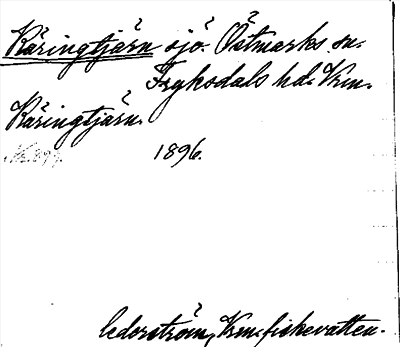 Käringtjärn sjö. Östmarks sn.
Fryksdals hd. Vrm.
Käringtjärn.
1896.
Cederström, Vrm. fiskevatten.